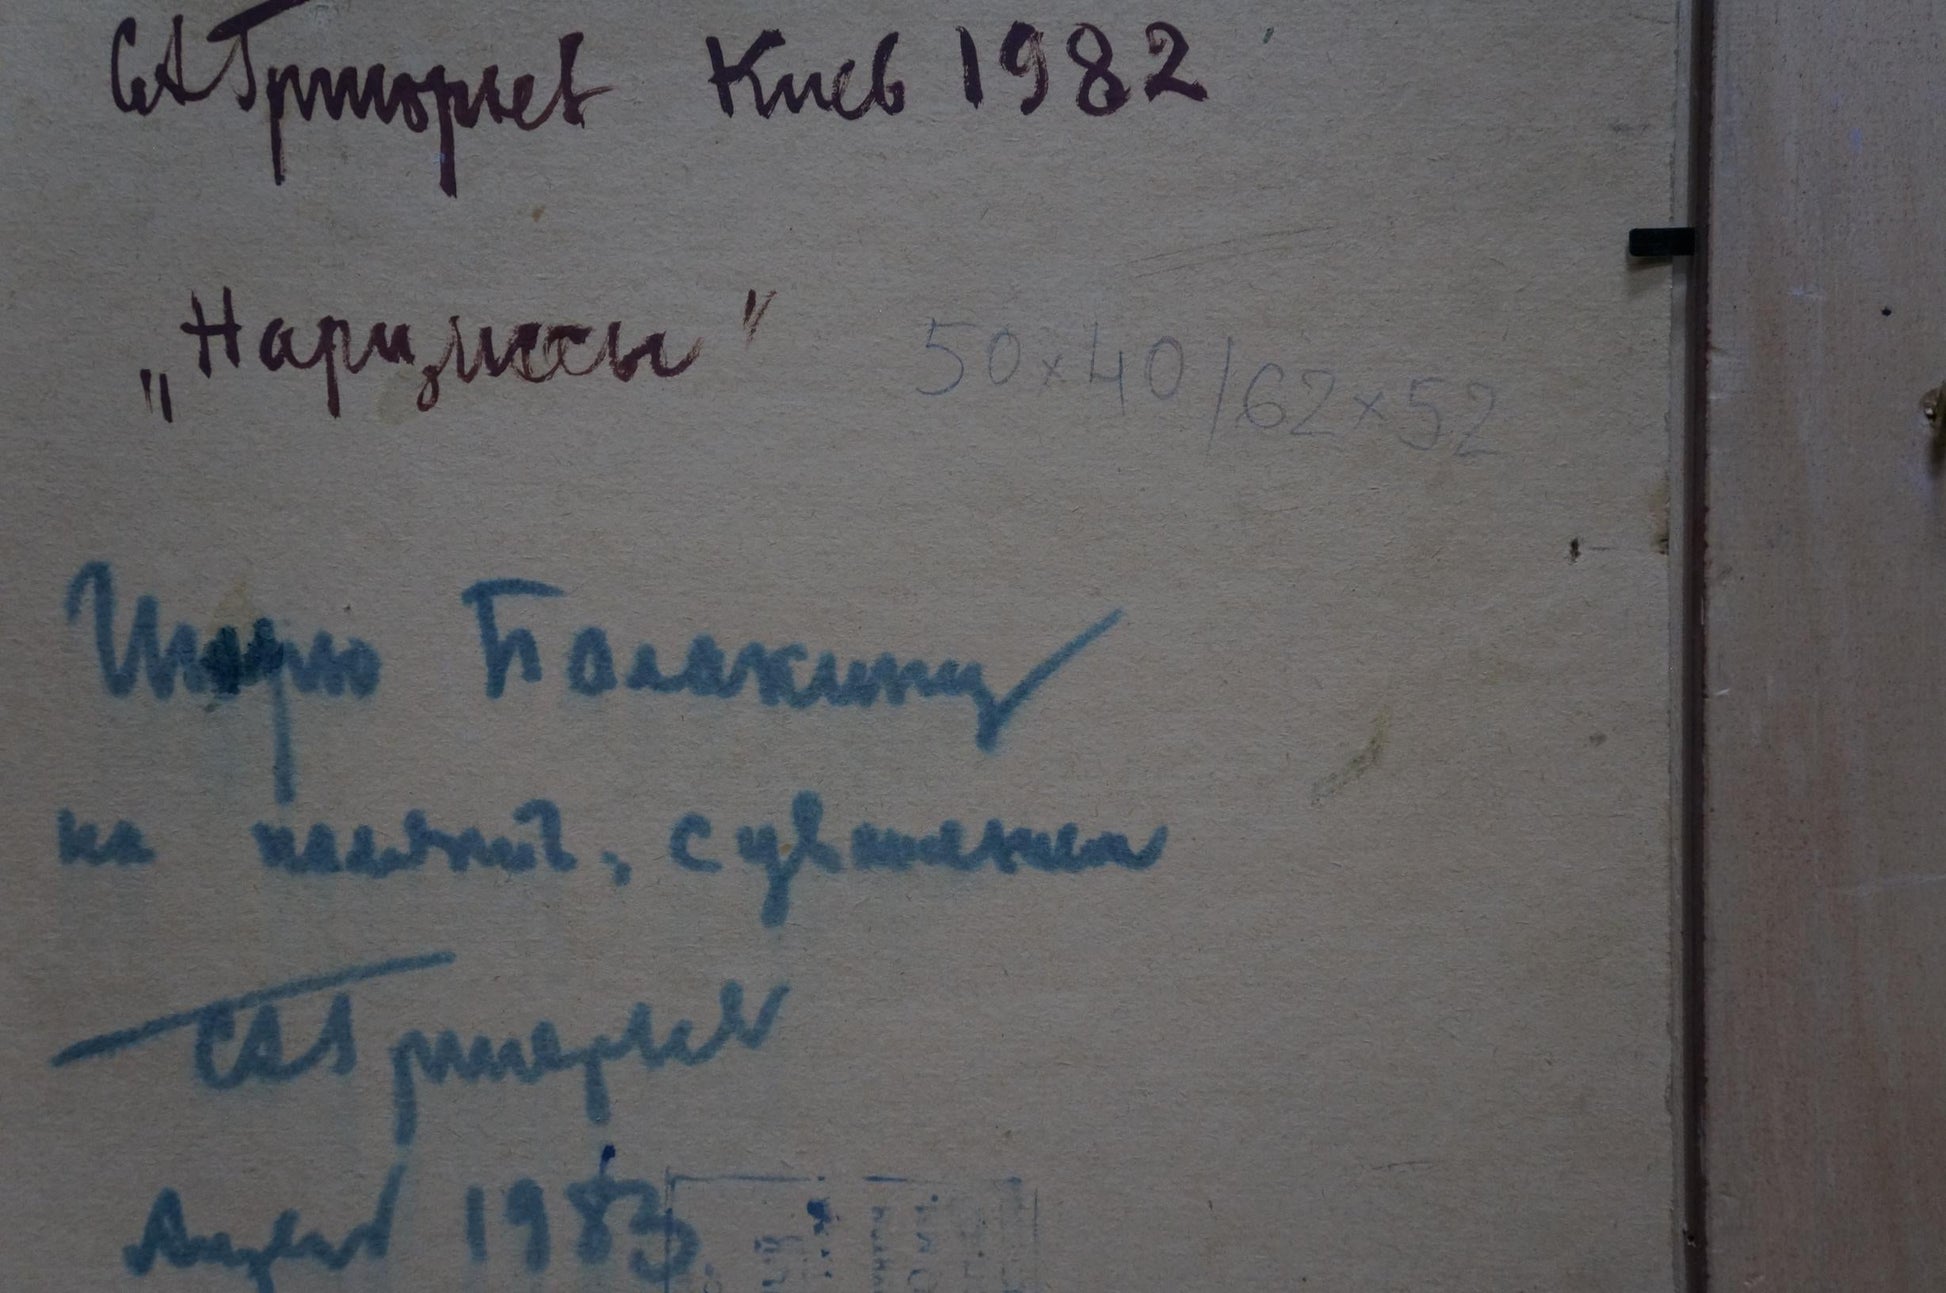 САГригорьев Киев 1982
„Нарциссы" 50x40/62x52
Игорю Балакину
на память, с уважением
САГригорьев
Апрель 1983